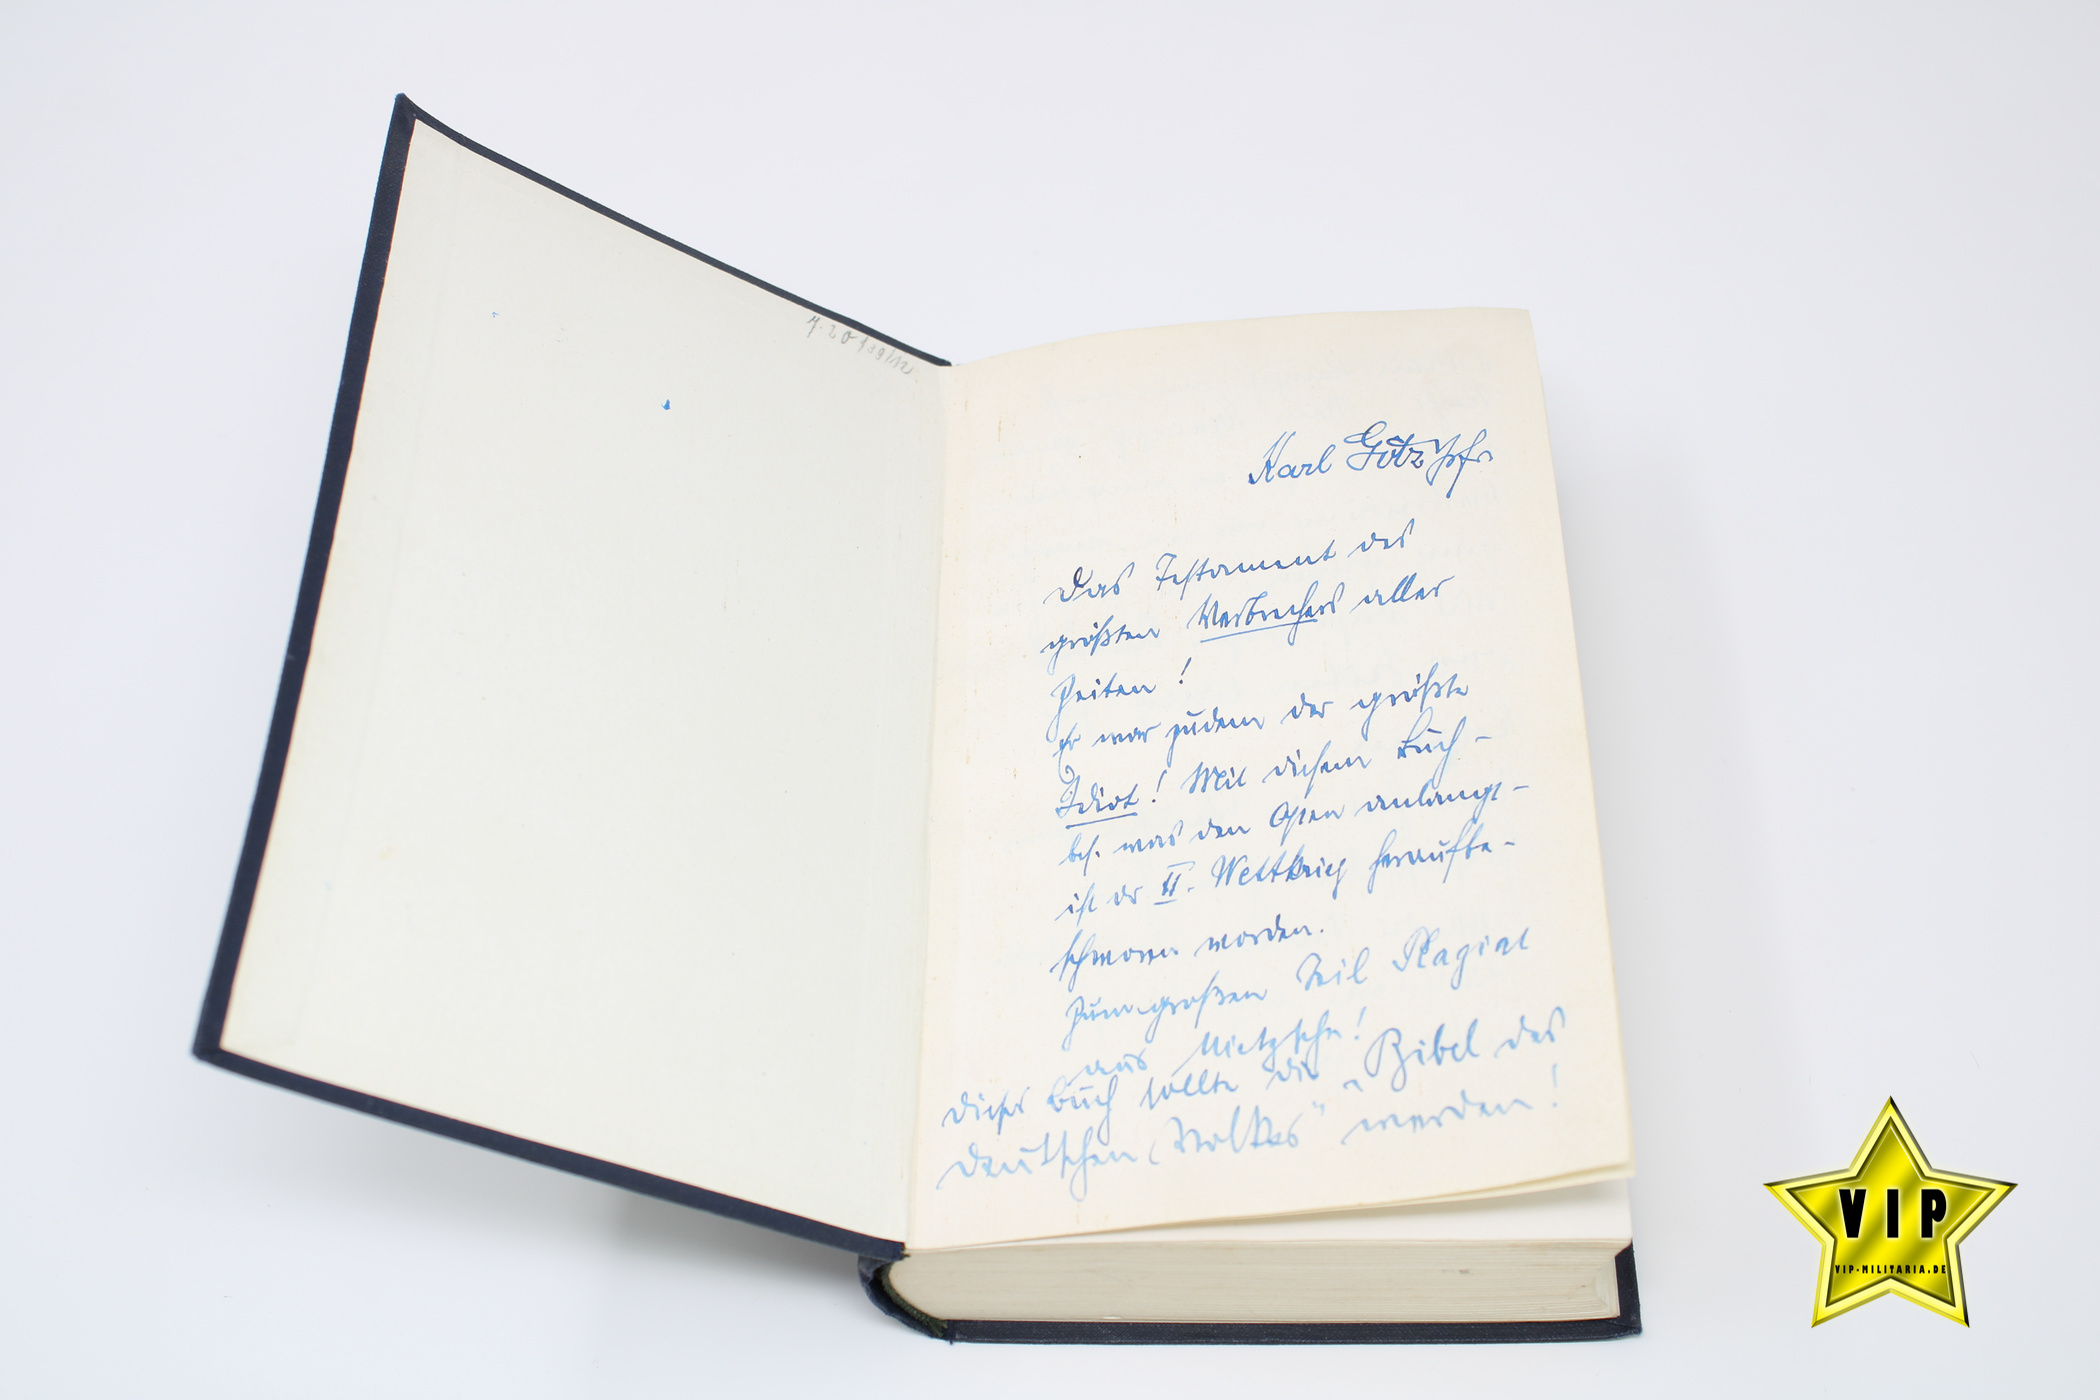 Karl Götz
Das Testament des
größten Verbrechers aller
Zeiten!
Er war zudem der größte
Idiot! Mit diesem Buch -
bes. was den Osten anlangt -
ist der II. Weltkrieg heraufbe-
schworen worden.
Zum großen Teil Plagiat
aus Nietzsche!
Dieses Buch sollte die „Bibel des
deutschen Volkes" werden!
VIP
VIP-MILITARIA.DE